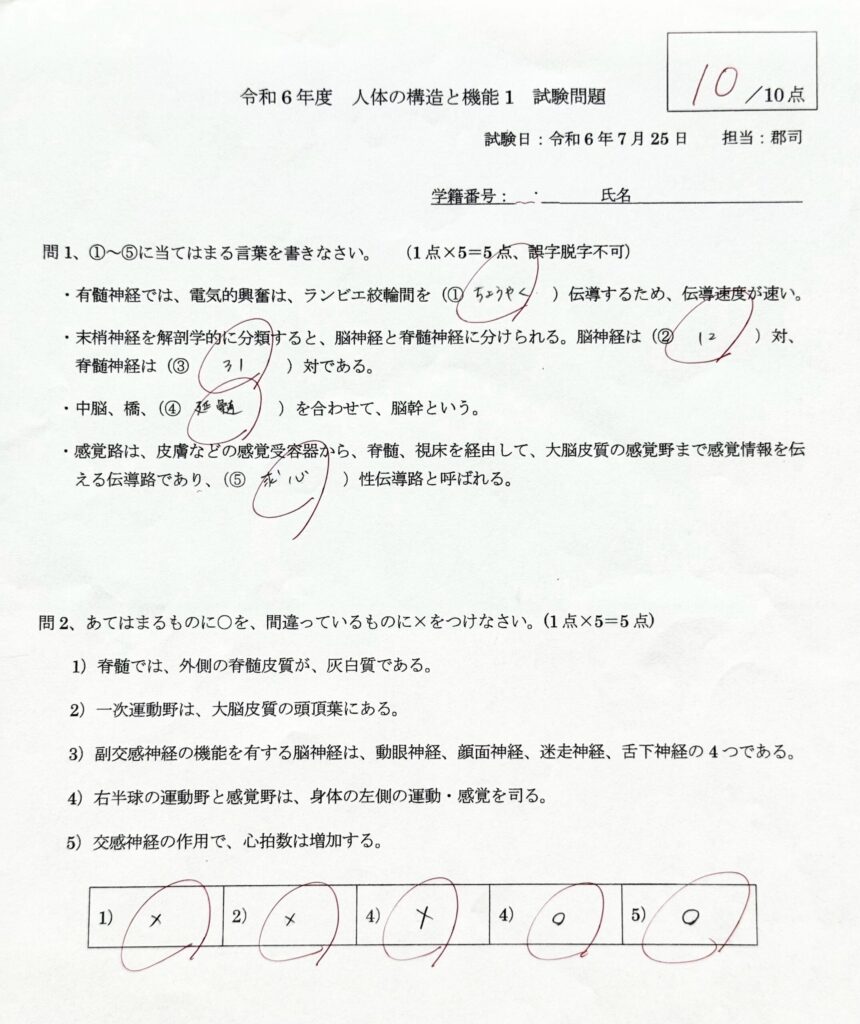 10/10点
令和6年度 人体の構造と機能1 試験問題
試験日：令和6年7月25日 担当：郡司
学籍番号： 氏名
問1、①～⑤に当てはまる言葉を書きなさい。 (1点×5=5点、誤字脱字不可)
・有髄神経では、電気的興奮は、ランビエ絞輪間を（① ちょうやく ）伝導するため、伝導速度が速い。
・末梢神経を解剖学的に分類すると、脳神経と脊髄神経に分けられる。脳神経は（② 12 ）対、
脊髄神経は（③ 31 ）対である。
・中脳、橋、（④ 延髄 ）を合わせて、脳幹という。
・感覚路は、皮膚などの感覚受容器から、脊髄、視床を経由して、大脳皮質の感覚野まで感覚情報を伝
える伝導路であり、（⑤ 求心 ）性伝導路と呼ばれる。
問2、あてはまるものに○を、間違っているものに×をつけなさい。(1点×5=5点)
1）脊髄では、外側の脊髄皮質が、灰白質である。
2）一次運動野は、大脳皮質の頭頂葉にある。
3）副交感神経の機能を有する脳神経は、動眼神経、顔面神経、迷走神経、舌下神経の4つである。
4）右半球の運動野と感覚野は、身体の左側の運動・感覚を司る。
5）交感神経の作用で、心拍数は増加する。
1） × 2） × 4） × 4） ○ 5） ○